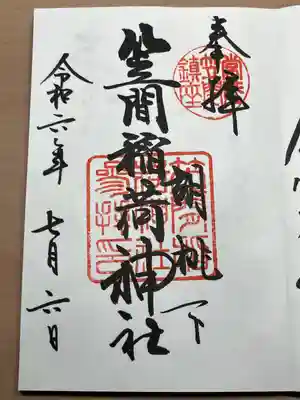 奉拝
胡桃下
笠間稲荷神社
令和六年 七月 六日